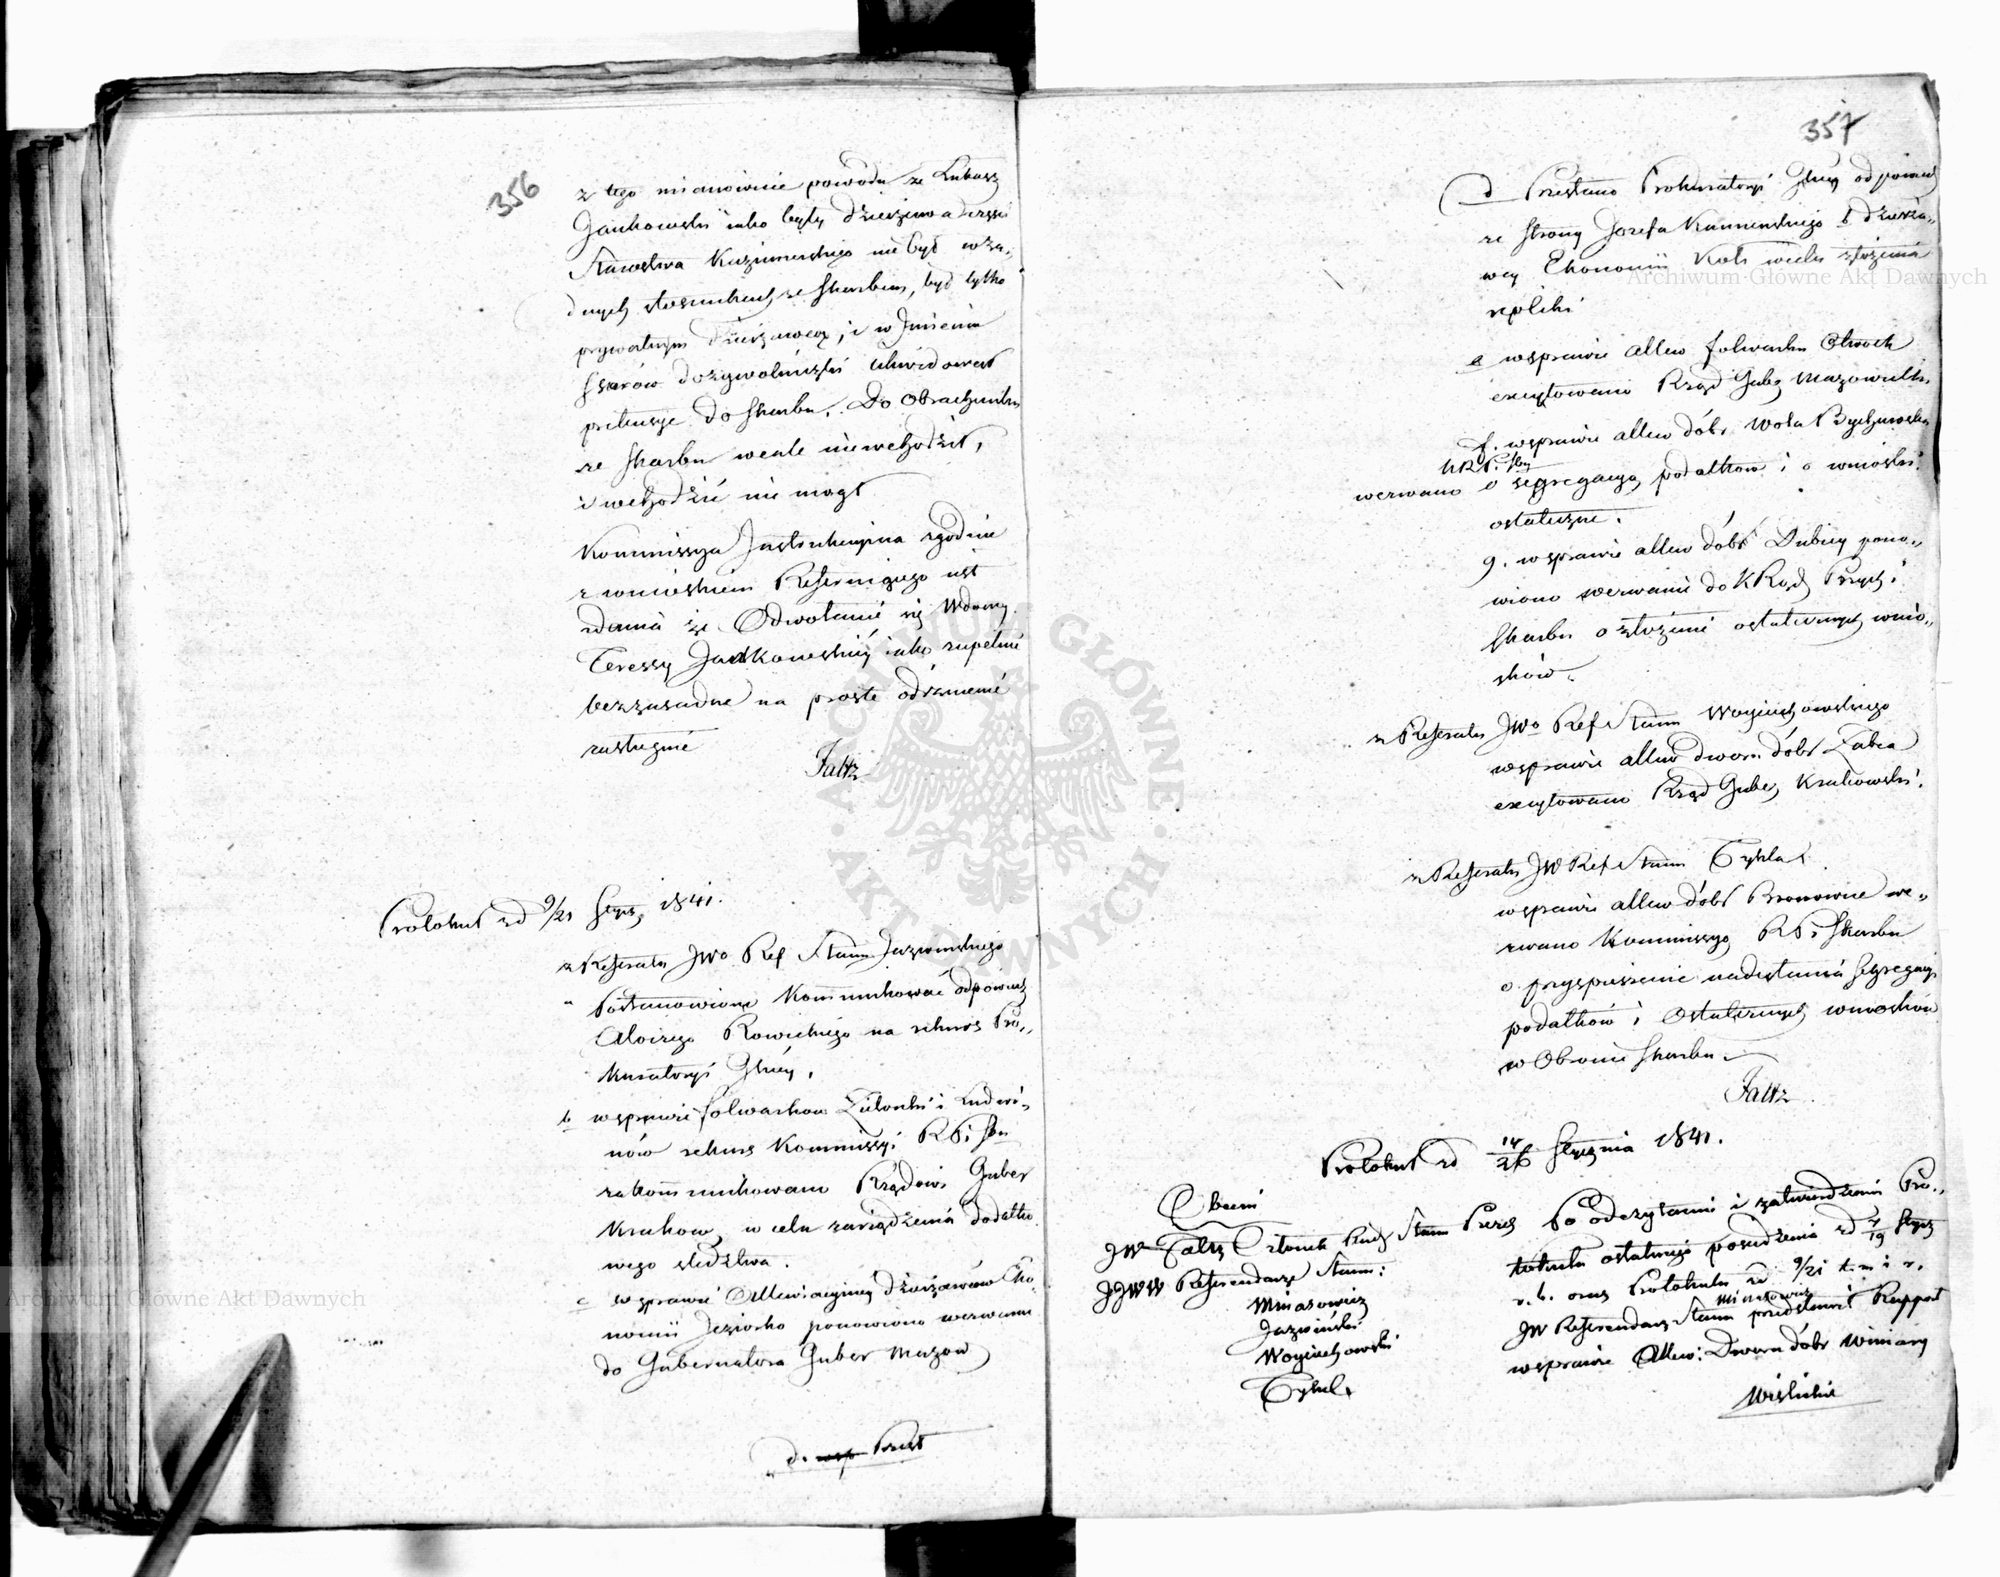 356
z tego mianowicie powodu ze Łukasz
Jankowski iako były dzierżawca dzssci
Starostwa Kazimierskiego nie był w ża„
dnych stosunkach ze skarbem, był tylko
prywatnym dzierżawcą, i w Jmieniu
dożywotniczki likwidował
pretensye do skarbu. Do Obrachunku
ze skarbem wcale nie wchodził,
i wchodzić nie mogł
Kommissya Jnstrukcyjna zgodnie
z wnioskiem Referuiącego iest
zdania że Odwołanie się Wdowy
Teressy Jankowskiey iako zupełnie
bezzasadne na proste odrzucenie
zasługuie
Faltz
Protokuł zd 9/21 Stycz 1841.
z Referatu JWo Ref Stanu Jazwinskiego
a Postanowiono kommunikować odpowiedz
Aloizego Rowickiego na rekurs Pro„
kuratoryi Głney,
b w sprawie folwarków Zielonki i Ludwi„
nów rekurs Kommissyi RPi Sbu
zakommunikowano Rządowi Guber
Krakow, w celu zarządzenia dodatko
wego sledztwa.
c w sprawie Allewiacyiney dzierżawców Eko
nomii Jeziorko ponowiono wezwanie
do Gubernatora Guber Mazow
d. wsp Przesł
357
d Przesłano Prokuratoryi Głney odpowiedz
ze strony Jozefa Kamienskiego b dzierża„
wcy Ekonomii Koło wielu złożenia
repliki
e w sprawie allew folwarku Otwock
excytowano Rząd Gubr Mazowiecki
f. w sprawie allew dóbr Wola Bychawska
KRPi Sbu
wezwano o segregacyą podatkow i o wnioski
ostateczne.
g. w sprawie allew dóbr Dubicy pono„
wiono wezwanie do KRząd Przych i
Skarbu o złożenie ostatecznych wnio„
sków.
z Referatu JWo Ref Stanu Woyciechowskiego
w sprawie allew dworu dóbr Zabia
excytowano Rząd Guber Krakowski.
z Referatu JW Ref Stanu Tykla
w sprawie allew dóbr Bronowice we„
zwano Kommissyą RPi Skarbu
o przyspieszenie nadesłania segregacyi
podatków i Ostatecznych wniosków
w Obronie skarbu.
Faltz
Protokuł zd 14/26 Stycznia 1841.
Obecni
JW Faltz Członek Rady Stanu Prezes
JJWW Referendarze Stanu:
Minasowicz
Jazwiński
Woyciechowski
Tykel
Po odczytaniu i zatwierdzeniu Pro„
tokułu ostatniego posiedzenia zd 7/19 Stycz
r. b. oraz Protokułu zd 9/21 t. m i r.
Minasowicz
JW Referendarz Stanu przedstawił Rapport
w sprawie Allew: Dworu dóbr Winiary
Wislickie
Archiwum Główne Akt Dawnych
Archiwum Główne Akt Dawnych
ARCHIWUM GŁÓWNE AKT DAWNYCH